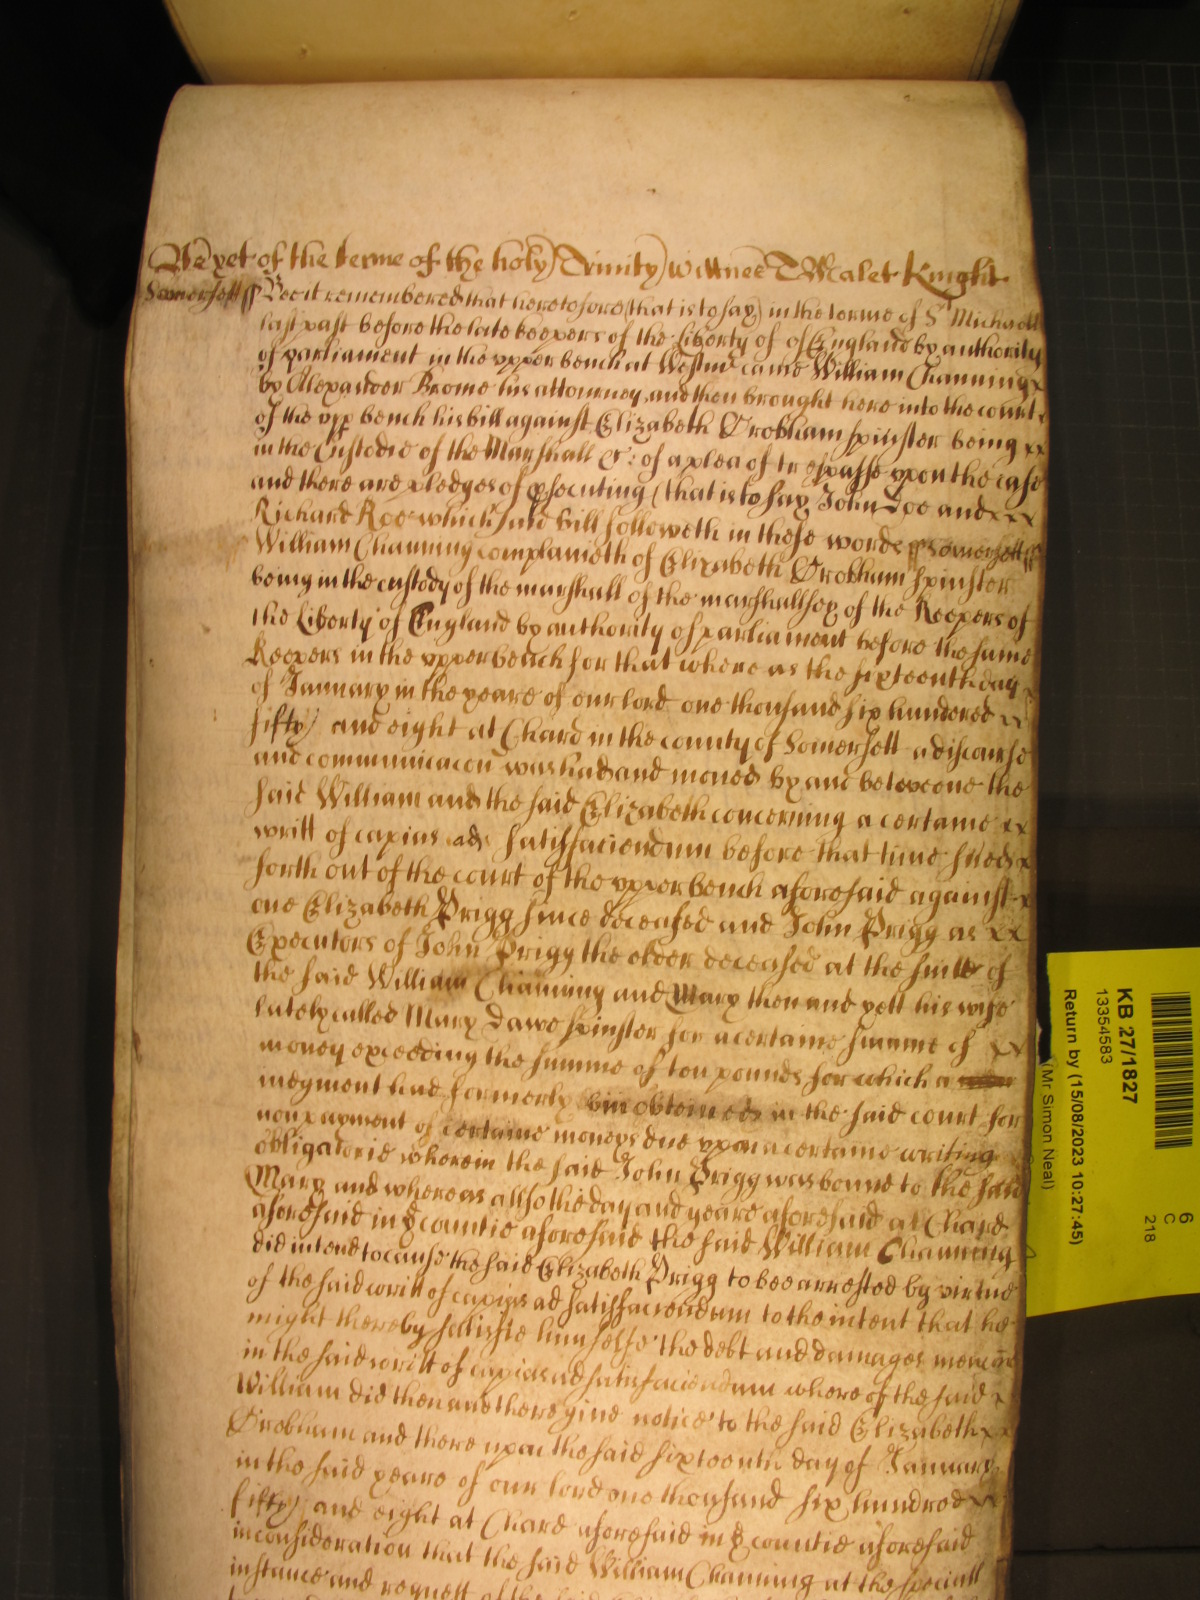 As yet of the terme of the holy Trinity wittnes T Malet Knight
Somersett ss Bee it remembered that heretofore (that is to say) in the terme of St Michaell
last past before the late keepers of the Liberty of of England by authority
of parliament in the upper bench at Westmr came William Channing x
by Alexander Brome his attourney and then brought here into the court x
of the upp bench his bill against Elizabeth Drobham spinster being xx
in the Custodie of the Marshall &c: of a plea of trespasse upon the case
and there are pledges of psecuting (that is to say John Doe and xxx
Richard Roe which said bill followeth in these words ss Somersett ss
William Channing complaineth of Elizabeth Drobham spinster
being in the custody of the marshall of the marshallsey of the Keepers of
the Liberty of England by authority of parliament before the same
Keepers in the upper bench for that where as the sixteenth day x
of January in the yeare of our lord one thousand six hundered xx
fifty and eight at Chard in the county of Somersett a discourse
and communicacon was had and moved by and betweene the
said William and the said Elizabeth concerning a certaine xx
writt of capias ad satisfaciendum before that time sued x
forth out of the court of the upper bench aforesaid against x
one Elizabeth Prigg since deceased and John Prigg as xx
Executors of John Prigg the elder deceased at the suite of
the said William Channing and Mary then and yett his wife
lately called Mary Dawe spinster for a certaine summe of xx
money exceeding the summe of ten pounds for which a
iudgment had formerly bin obteined in the said court for
nonpayment of certaine moneys due upon a certaine writing
obligatorie wherein the said John Prigg was bound to the said
Mary and whereas allso the day and yeare aforesaid at Chard
aforesaid in ye countie aforesaid the said William Channing
did intend to cause the said Elizabeth Prigg to bee arrested by virtue
of the said writt of capias ad satisfaciendum to the intent that he
might thereby sattisfie himselfe the debt and damages
in the said writt of capias ad satisfaciendum where of the said x
William did then and there give notice to the said Elizabeth xx
Drobham and there upon the said sixteenth day of January
in the said yeare of our lord one thousand six hundred xx
fifty and eight at Chard aforesaid in ye countie aforesaid
inconsideration that the said William Channing at the speciall
instance and request of the said
KB 27/1827
13354583
Return by (15/08/2023 10:27:45)
(Mr Simon Neal)
6
C
218